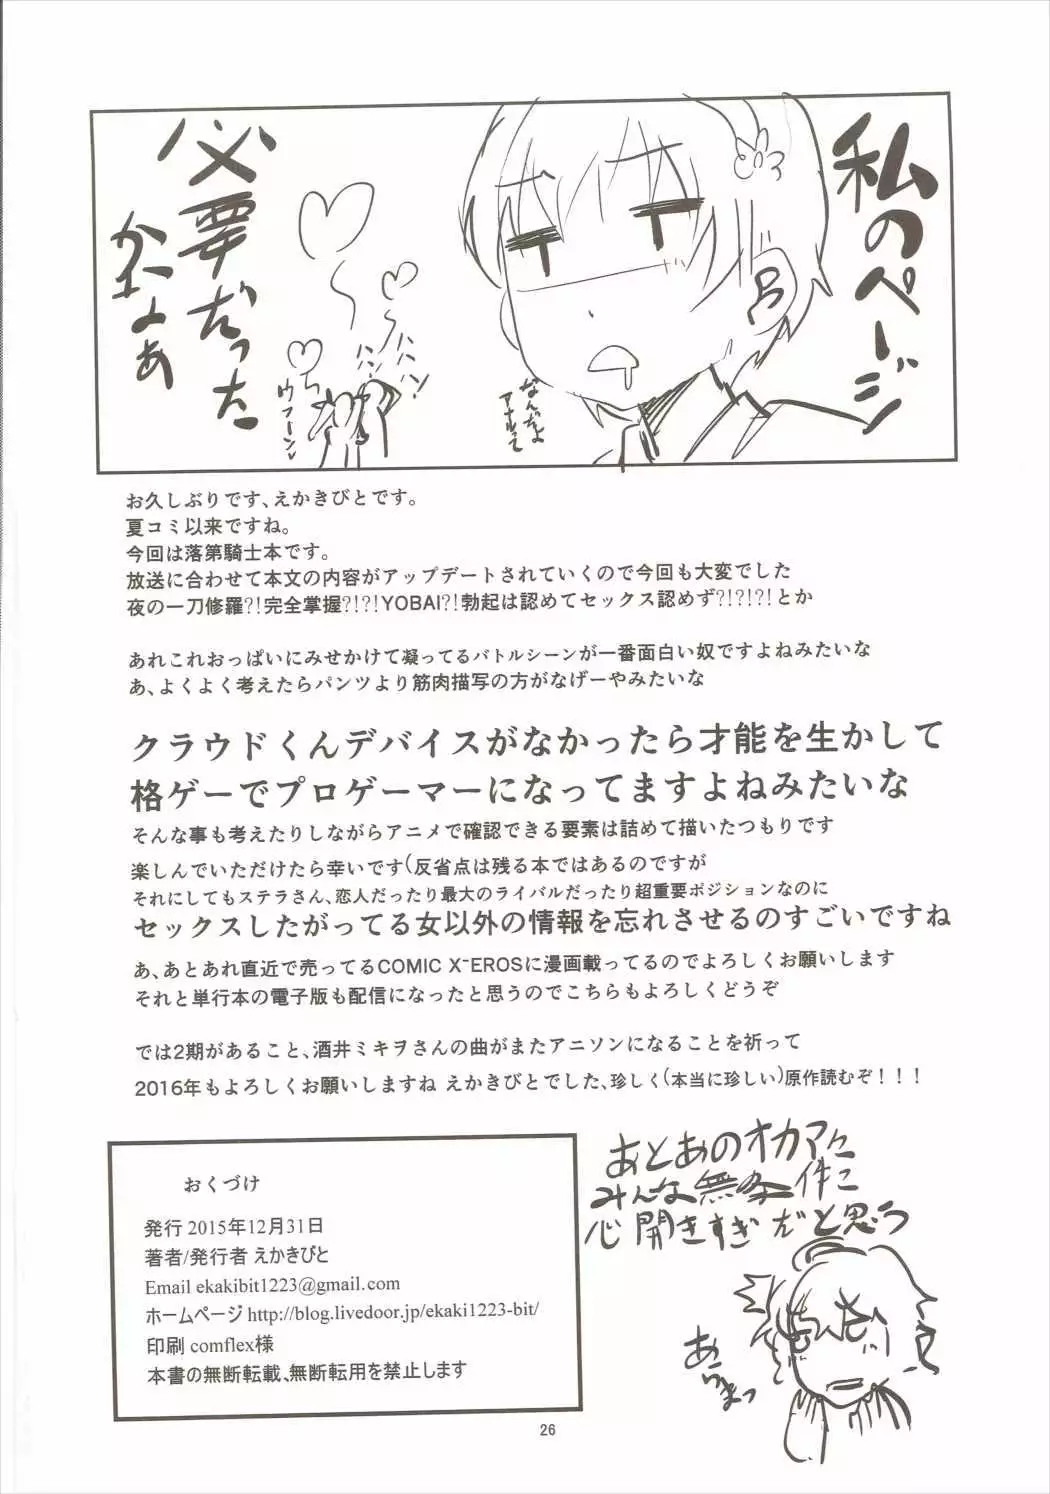 私のページ
必要だった
かなぁ
なんだよ
アナルって
ウフーン
お久しぶりです、えかきびとです。
夏コミ以来ですね。
今回は落第騎士本です。
放送に合わせて本文の内容がアップデートされていくので今回も大変でした
夜の一刀修羅?!完全掌握?!?!YOBAI?!勃起は認めてセックス認めず?!?!?!とか
あれこれおっぱいにみせかけて凝ってるバトルシーンが一番面白い奴ですよねみたいな
あ、よくよく考えたらパンツより筋肉描写の方がなげーやみたいな
クラウドくんデバイスがなかったら才能を生かして
格ゲーでプロゲーマーになってますよねみたいな
そんな事も考えたりしながらアニメで確認できる要素は詰めて描いたつもりです
楽しんでいただけたら幸いです(反省点は残る本ではあるのですが
それにしてもステラさん、恋人だったり最大のライバルだったり超重要ポジションなのに
セックスしたがってる女以外の情報を忘れさせるのすごいですね
あ、あとあれ直近で売ってるCOMIC X-EROSに漫画載ってるのでよろしくお願いします
それと単行本の電子版も配信になったと思うのでこちらもよろしくどうぞ
では2期があること、酒井ミキヲさんの曲がまたアニソンになることを祈って
2016年もよろしくお願いしますね えかきびとでした、珍しく(本当に珍しい)原作読むぞ!!!
あとあのオカマに
みんな無条件に
心開きすぎだと思う
おくづけ
発行 2015年12月31日
著者/発行者 えかきびと
Email ekakibit1223@gmail.com
ホームページ http://blog.livedoor.jp/ekaki1223-bit/
印刷 comflex様
本書の無断転載、無断転用を禁止します
26